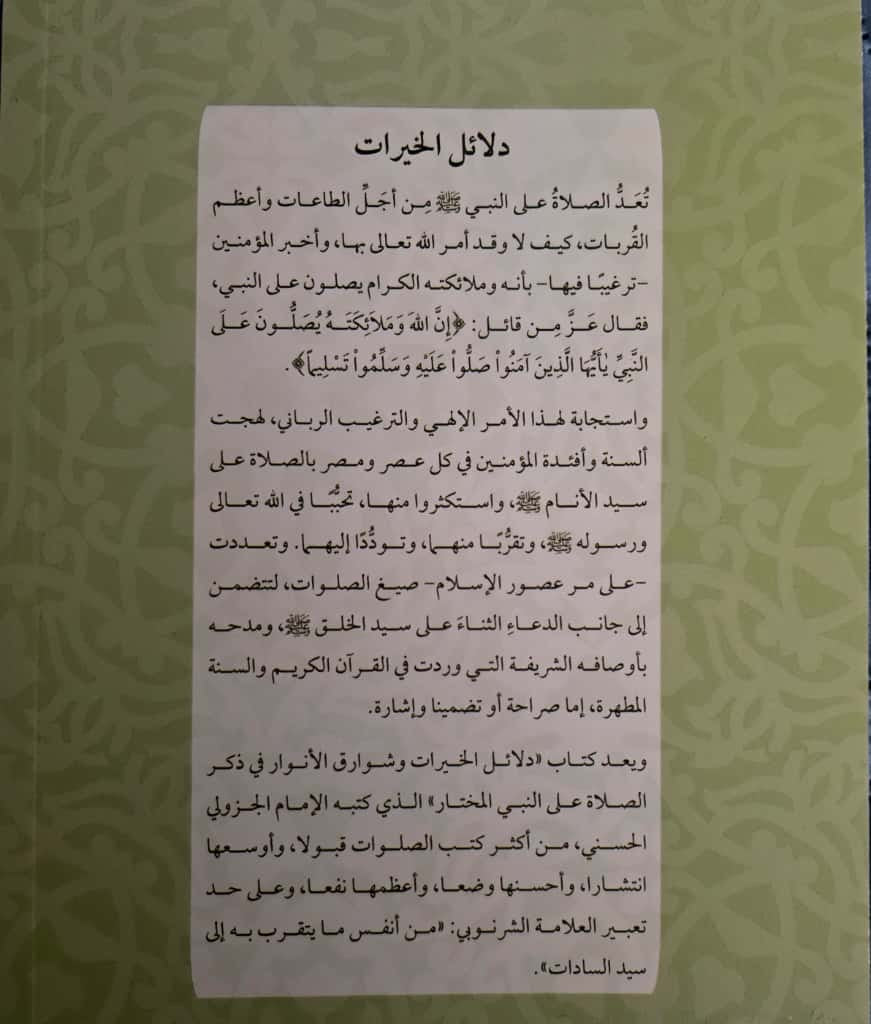 دلائل الخيرات
تُعَدُّ الصلاةُ على النبي ﷺ مِن أجَلِّ الطاعات وأعظم
القُربات، كيف لا وقد أمر الله تعالى بها، وأخبر المؤمنين
-ترغيبًا فيها- بأنه وملائكته الكرام يصلون على النبي،
فقال عَزَّ مِن قائل: ﴿إِنَّ اللَّهَ وَمَلَائِكَتَهُ يُصَلُّونَ عَلَى
النَّبِيِّ يَٰأَيُّهَا الَّذِينَ آمَنُواْ صَلُّواْ عَلَيْهِ وَسَلِّمُواْ تَسْلِيماً﴾.
واستجابة لهذا الأمر الإلهي والترغيب الرباني، لهجت
ألسنة وأفئدة المؤمنين في كل عصر ومصر بالصلاة على
سيد الأنام ﷺ، واستكثروا منها، تحبُّبًا في الله تعالى
ورسوله ﷺ، وتقرُّبًا منهما، وتودُّدًا إليهما. وتعددت
-على مر عصور الإسلام- صيغ الصلوات، لتتضمن
إلى جانب الدعاءِ الثناءَ على سيد الخلق ﷺ، ومدحه
بأوصافه الشريفة التي وردت في القرآن الكريم والسنة
المطهرة، إما صراحة أو تضمينا وإشارة.
ويعد كتاب «دلائل الخيرات وشوارق الأنوار في ذكر
الصلاة على النبي المختار» الذي كتبه الإمام الجزولي
الحسني، من أكثر كتب الصلوات قبولا، وأوسعها
انتشارا، وأحسنها وضعا، وأعظمها نفعا، وعلى حد
تعبير العلامة الشرنوبي: «من أنفس ما يتقرب به إلى
سيد السادات».